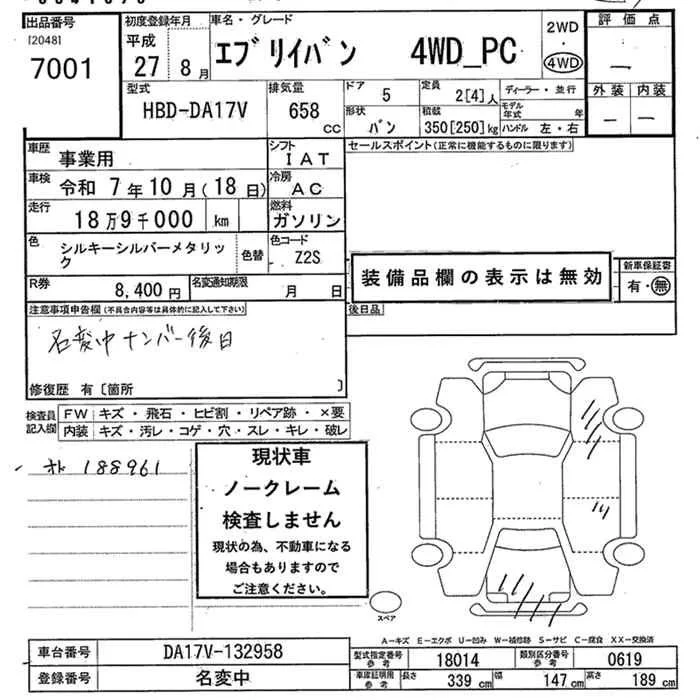 出品番号
[2048]
7001
初度登録年月
平成
27 8月
車名・グレード
エブリイバン 4WD_PC
2WD
・
4WD
評価点
―
外装 内装
― ―
型式
HBD-DA17V
排気量
658
cc
ドア
5
定員
2[4]人
形状
バン
積載
350[250]kg
ディーラー・並行
モデル年式 年
ハンドル 左・右
車歴 事業用
シフト
IAT
車検 令和 7年10月(18日)
冷房
AC
走行 18万9千000 km
燃料
ガソリン
色 シルキーシルバーメタリック
色替
色コード
Z2S
R券 8,400円
名変通知期限
月 日
セールスポイント(正常に機能するものに限ります)
装備品欄の表示は無効
新車保証書
有・無
後日品
注意事項申告欄(不具合内容等は具体的に記入して下さい)
名変中ナンバー後日
修復歴 有〔箇所 〕
検査員記入欄
FW キズ・飛石・ヒビ割・リペア跡・×要
内装 キズ・汚レ・コゲ・穴・スレ・キレ・破レ
188961
現状車
ノークレーム
検査しません
現状の為、不動車になる
場合もありますので
ご注意ください。
スペア
A－キズ E－エクボ U－凹み W－補修跡 S－サビ C－腐食 XX－交換済
車台番号 DA17V-132958
登録番号 名変中
型式指定番号
参考
18014
類別区分番号
参考
0619
車庫証明用
参考
長さ 339cm 幅 147cm 高さ 189cm